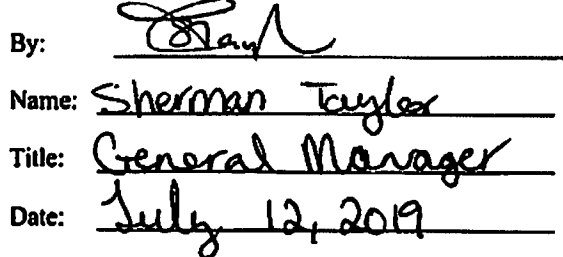 By:
Name: Sherman Taylor
Title: General Manager
Date: July 12, 2019